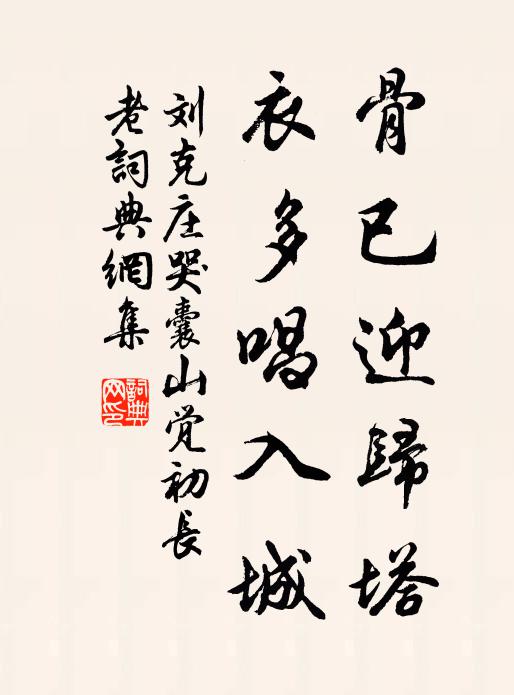 骨已迎歸塔
衣多唱入城
刘克庄哭囊山觉初長
老詞典網集
詞典网印